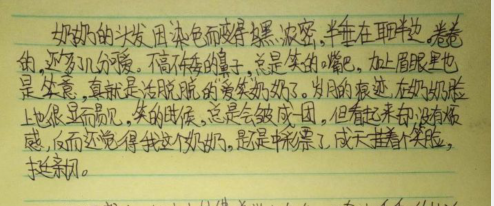 奶奶的头发因染色而变得乌黑浓密,半垂在耳边。卷卷
的,还多了几分可爱。不高不矮的鼻子,总是笑的嘴巴,加上眉眼里也
是笑意,真就是活脱脱的爱笑奶奶了。岁月的痕迹在奶奶脸
上也很显而易见,笑的时候,总是会皱成一团,但看起来却没有烦
感,反而还觉得我这个奶奶,是不是中彩票了,成天挂着个笑脸,
挺亲切。